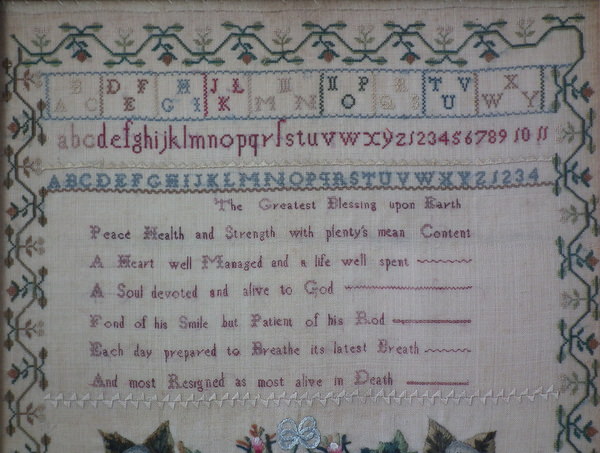 B D F H J L M N P R T V X
A C E G I K M N O Q S U W Y
abcdefghijklmnopqrſstuvwxyz1234567891011
ABCDEFGHIJKLMNOPQRSTUVWXYZ1234
The Greatest Blessing upon Earth
Peace Health and Strength with plenty's mean Content
A Heart well Managed and a life well spent
A Soul devoted and alive to God
Fond of his Smile but Patient of his Rod
Each day prepared to Breathe its latest Breath
And most Resigned as most alive in Death